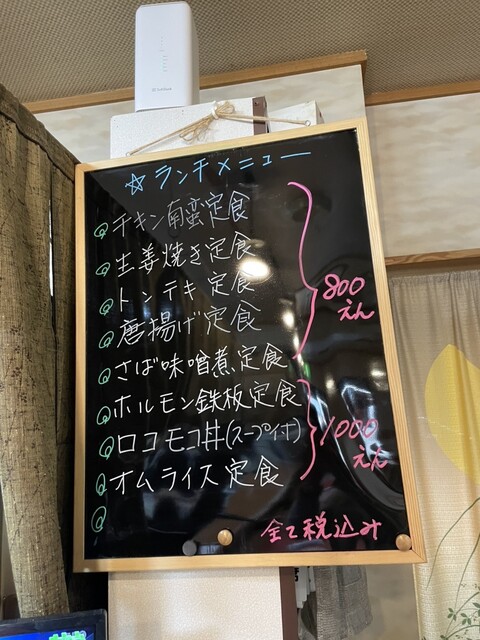 ☆ランチメニュー
チキン南蛮定食
生姜焼き定食
トンテキ定食
唐揚げ定食
さば味噌煮定食
800
えん
ホルモン鉄板定食
ロコモコ丼(スープ付)
オムライス定食
1000
えん
全て税込み